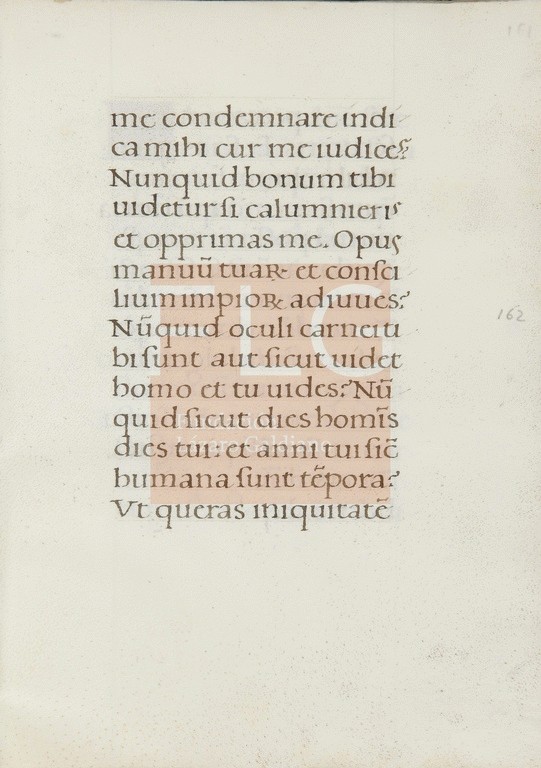 151
me condemnare indi
ca mihi cur me iudices?
Nunquid bonum tibi
uidetur si calumnieris
et opprimas me. Opus
manuū tuaꝝ et consi
lium impioꝝ adiuues?
162
Nūquid oculi carnei ti
bi sunt aut sicut uidet
homo et tu uides? Nū
quid sicut dies homīs
dies tui: et anni tui sic̄
humana sunt tēpora?
Vt queras iniquitatē
FLG
Lázaro Galdiano